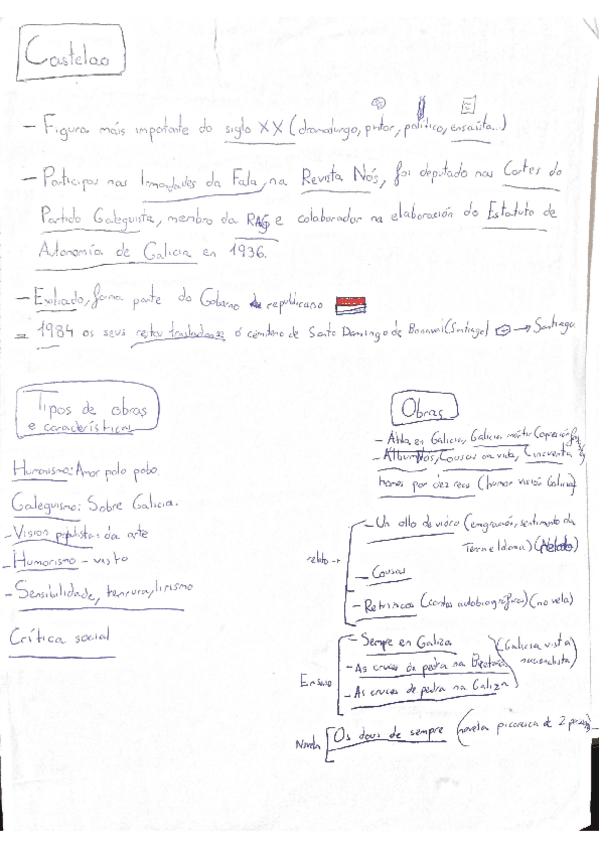 Castelao
- Figura máis importante do siglo XX (dramaturgo, pintor, político, ensaísta...)
- Participou nas Irmandades da Fala, na Revista Nós, foi deputado nas Cortes do
Partido Galeguista, membro da RAG e colaborador na elaboración do Estatuto de
Autonomía de Galicia en 1936.
- Exiliado, forma parte do Goberno republicano
= 1984 os seus restos trasladanse ó cemiterio de Santo Domingo de Bonaval (Santiago) → Santiago
Tipos de obras
e características
Humanismo: Amor polo pobo.
Galeguismo: Sobre Galicia.
- Vision populista da arte
- Humorismo - visto
- Sensibilidade, tenrura, lirismo
Crítica social
Obras
- Atila en Galicia, Galicia mártir
- Album Nós, Cousas da vida, Cincuenta
homes por dez reás (humor visión Galicia)
relato →
- Un ollo de vidro (emigración, sentimento da
Terra e Idioma)
- Cousas
- Retrincos (contos autobiográficos) (novela)
Ensaio
- Sempre en Galiza
- As cruces de pedra na Bretaña
- As cruces de pedra na Galiza
(Galicia vista
nacionalista)
Novela
Os dous de sempre (novela picaresca de 2